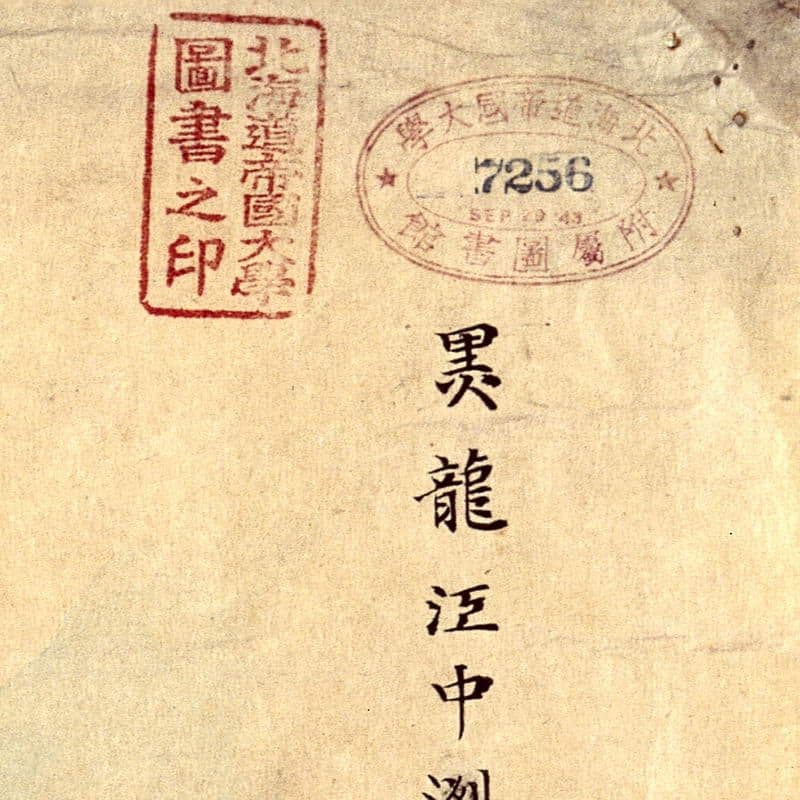 北海道帝國大學
圖書之印
北海道帝國大學
7256
SEP 29 '43
附屬圖書館
黒龍江中